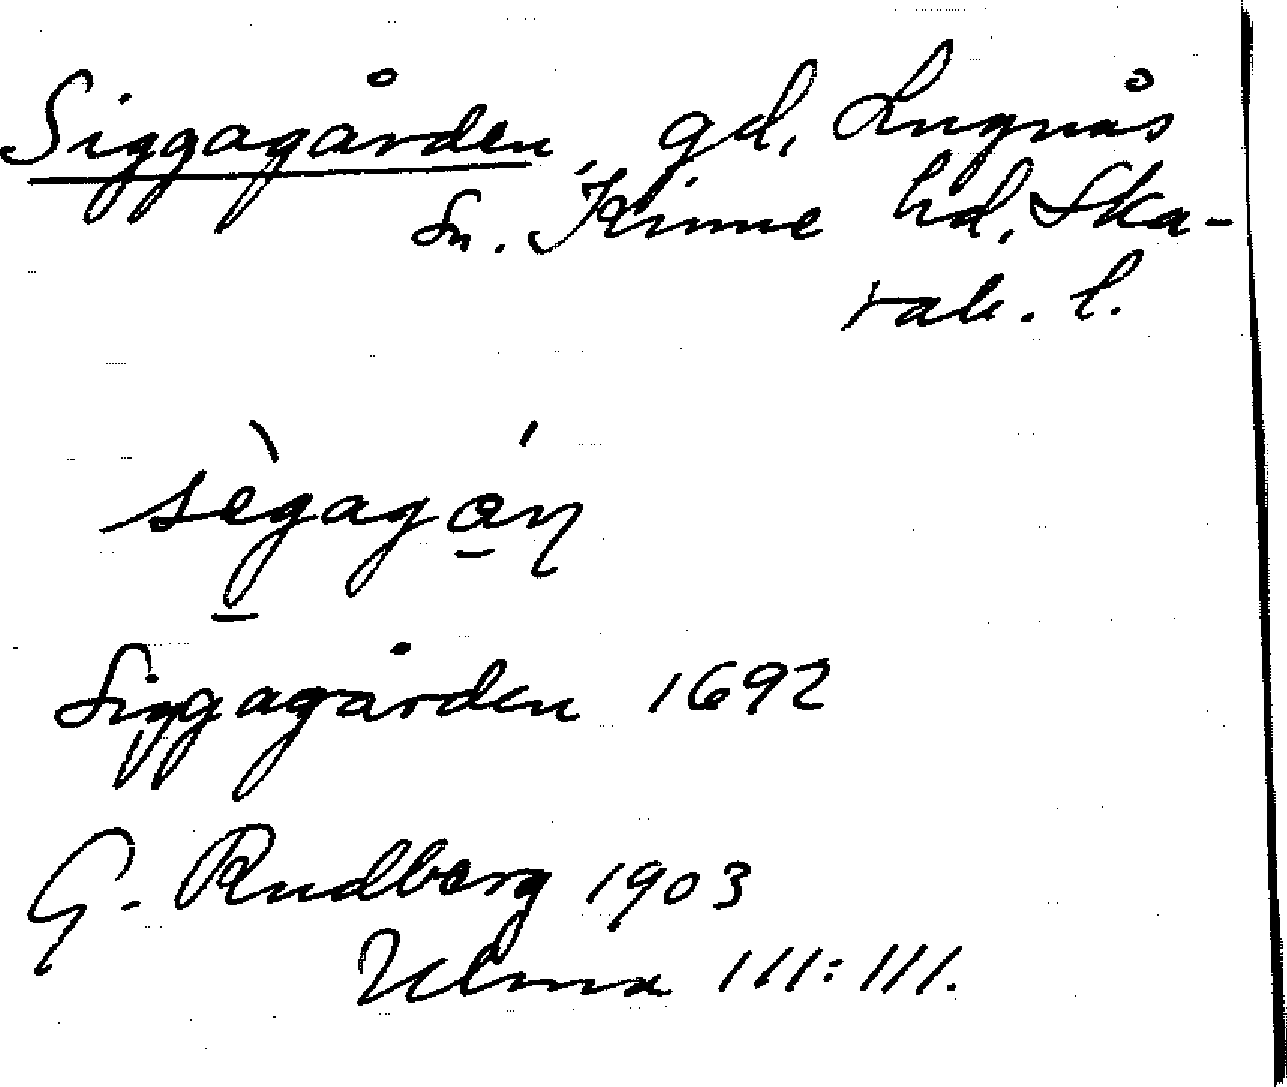 Siggagården, gd, Lugnås
sn. Kinne hd, Ska-
rab. l.
sègagán
Siggagården 1692
G. Rudberg 1903
Ulma 111:111.